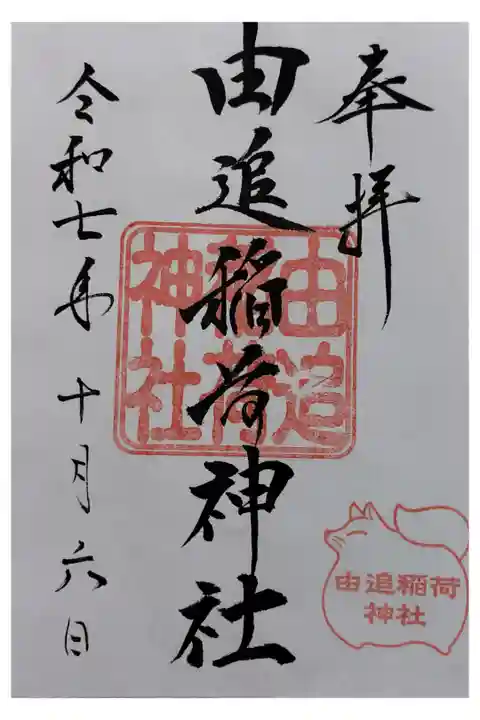 奉拝
由追稲荷神社
由追
稲荷
神社
令和七年 十月六日
由追稲荷
神社